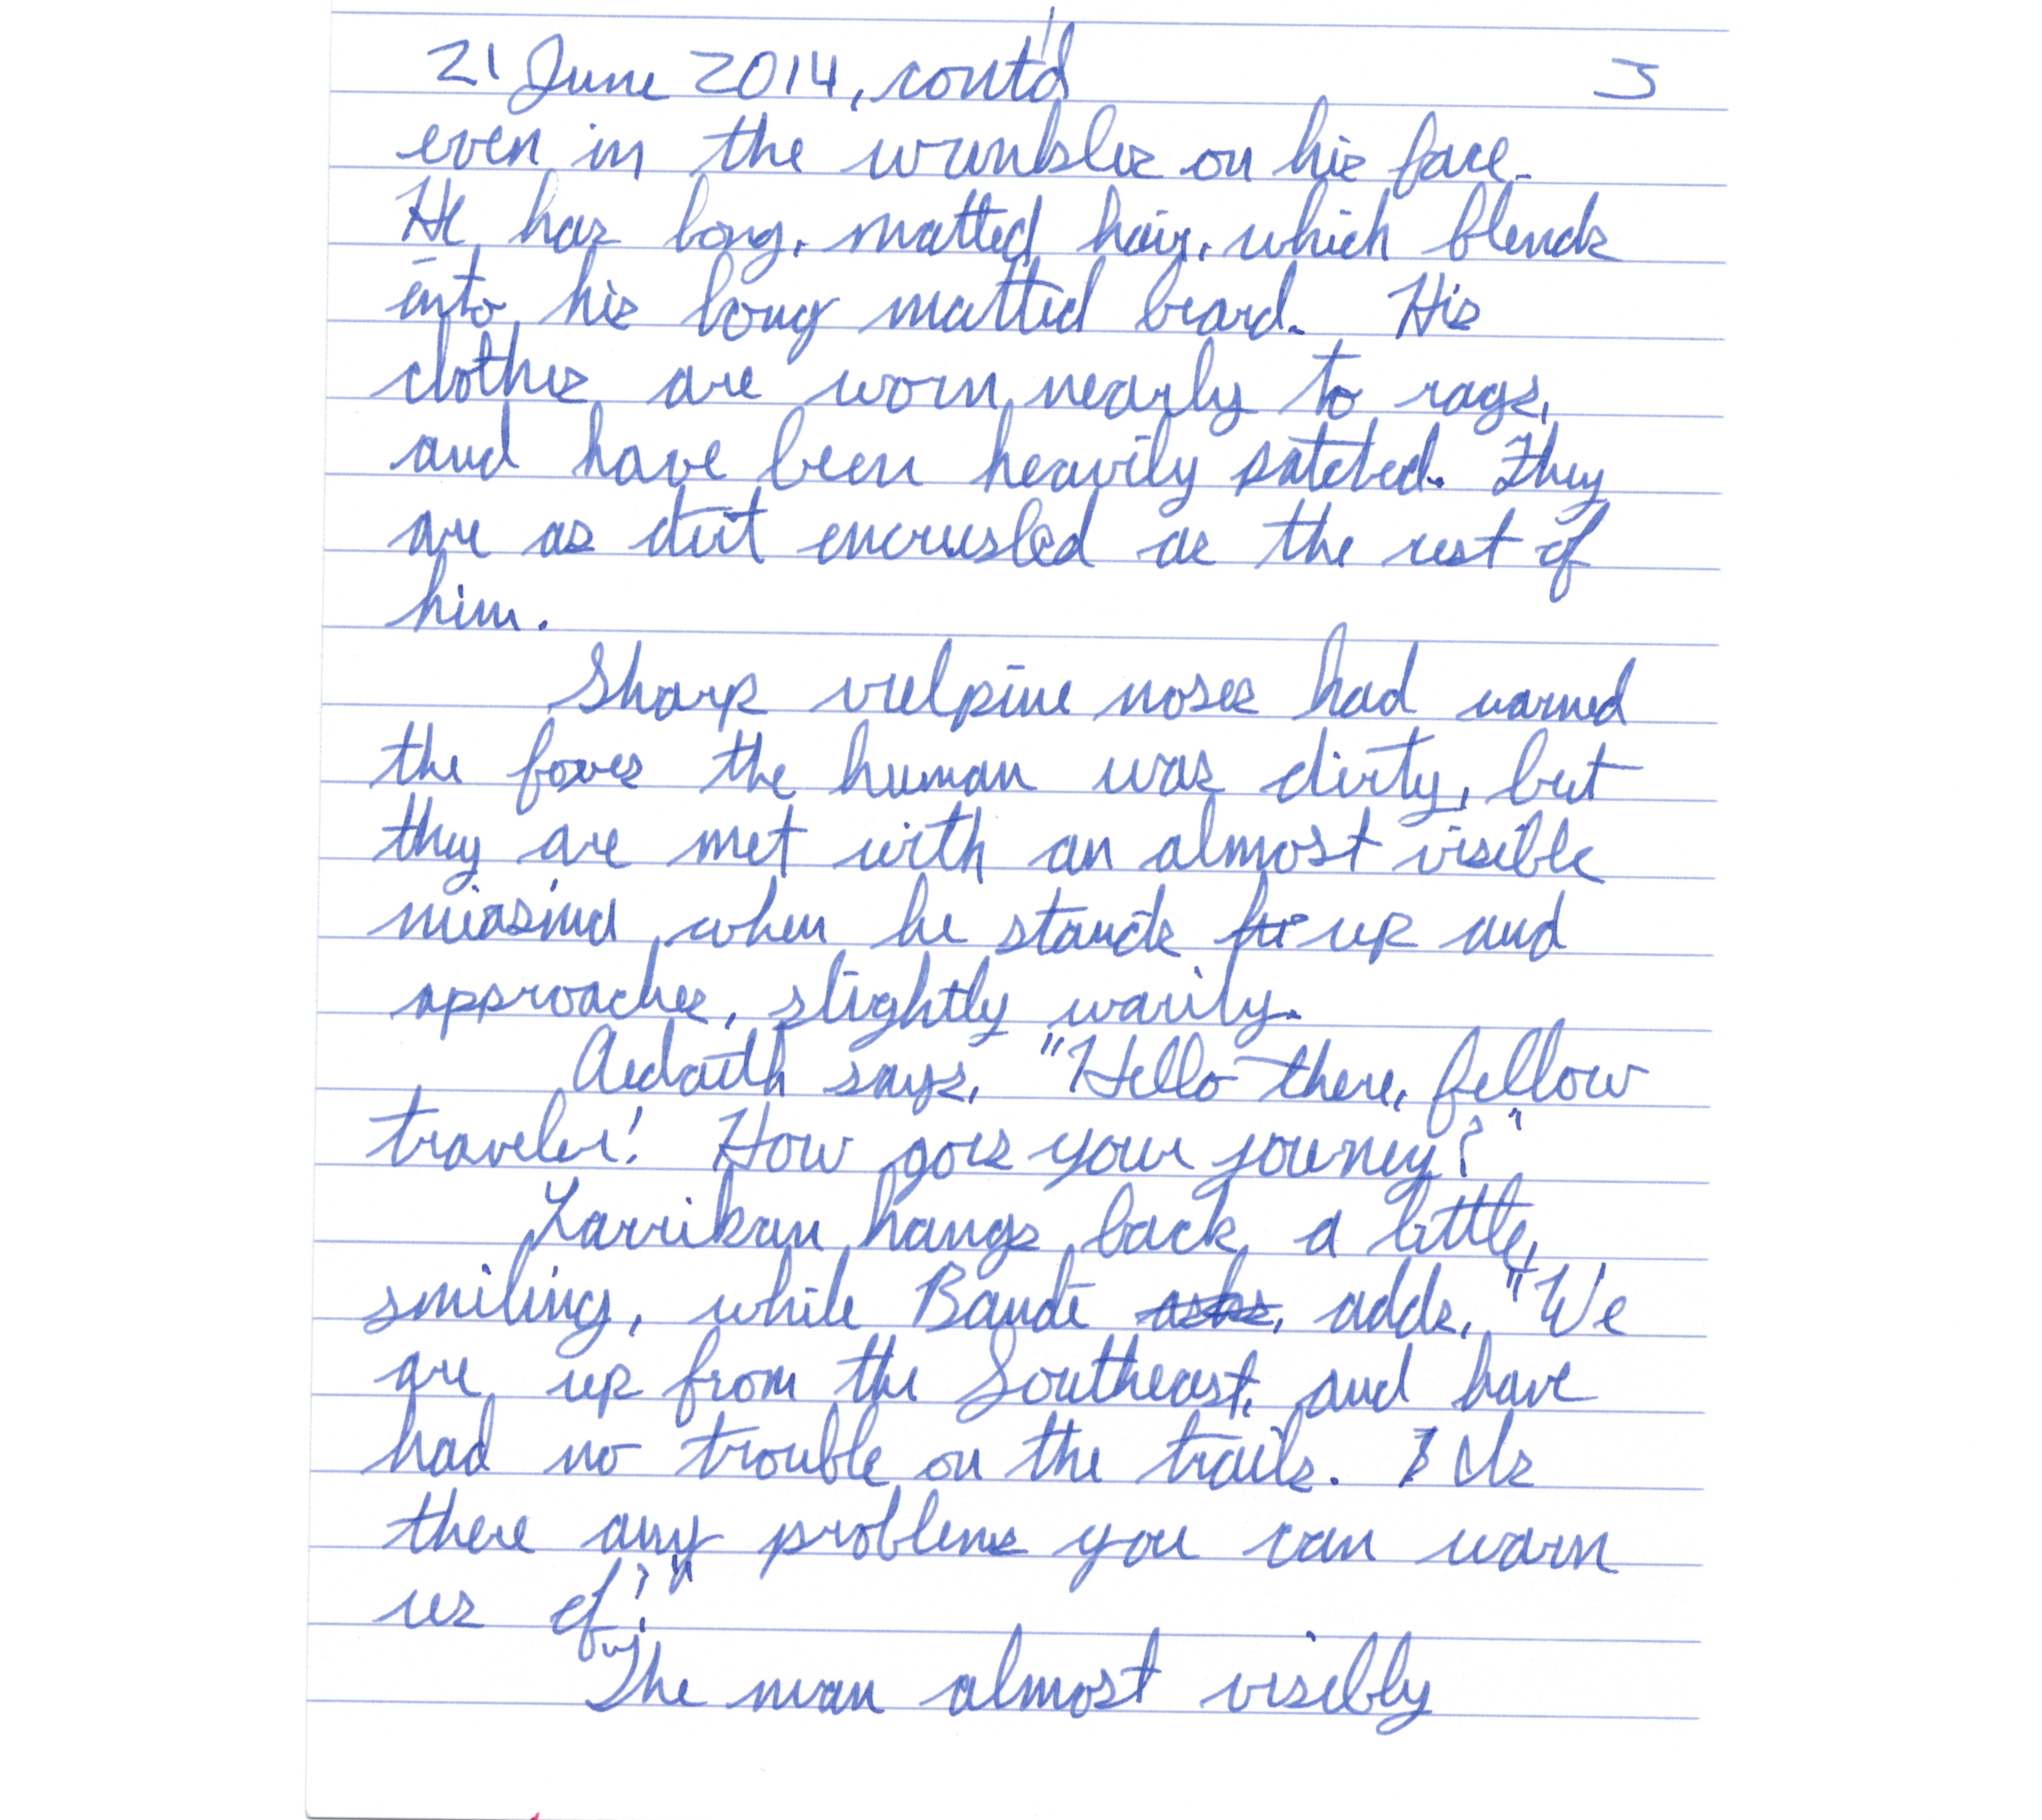 21 June 2014, cont'd 3
even in the wrinkles on his face.
He has long, matted hair, which blends
into his long matted beard. His
clothes are worn nearly to rags,
and have been heavily patched. They
are as dirt encrusted as the rest of
him.
Sharp vulpine noses had warned
the foxes the human was dirty, but
they are met with an almost visible
miasma when he stands up and
approaches, slightly warily.
Aedaith says, "Hello there, fellow
traveler! How goes your journey?"
Larrikan hangs back a little,
smiling, while Bandi asks, adds, "We
are up from the Southeast, and have
had no trouble on the trails. Is
there any problems you can warn
us of?"
The man almost visibly